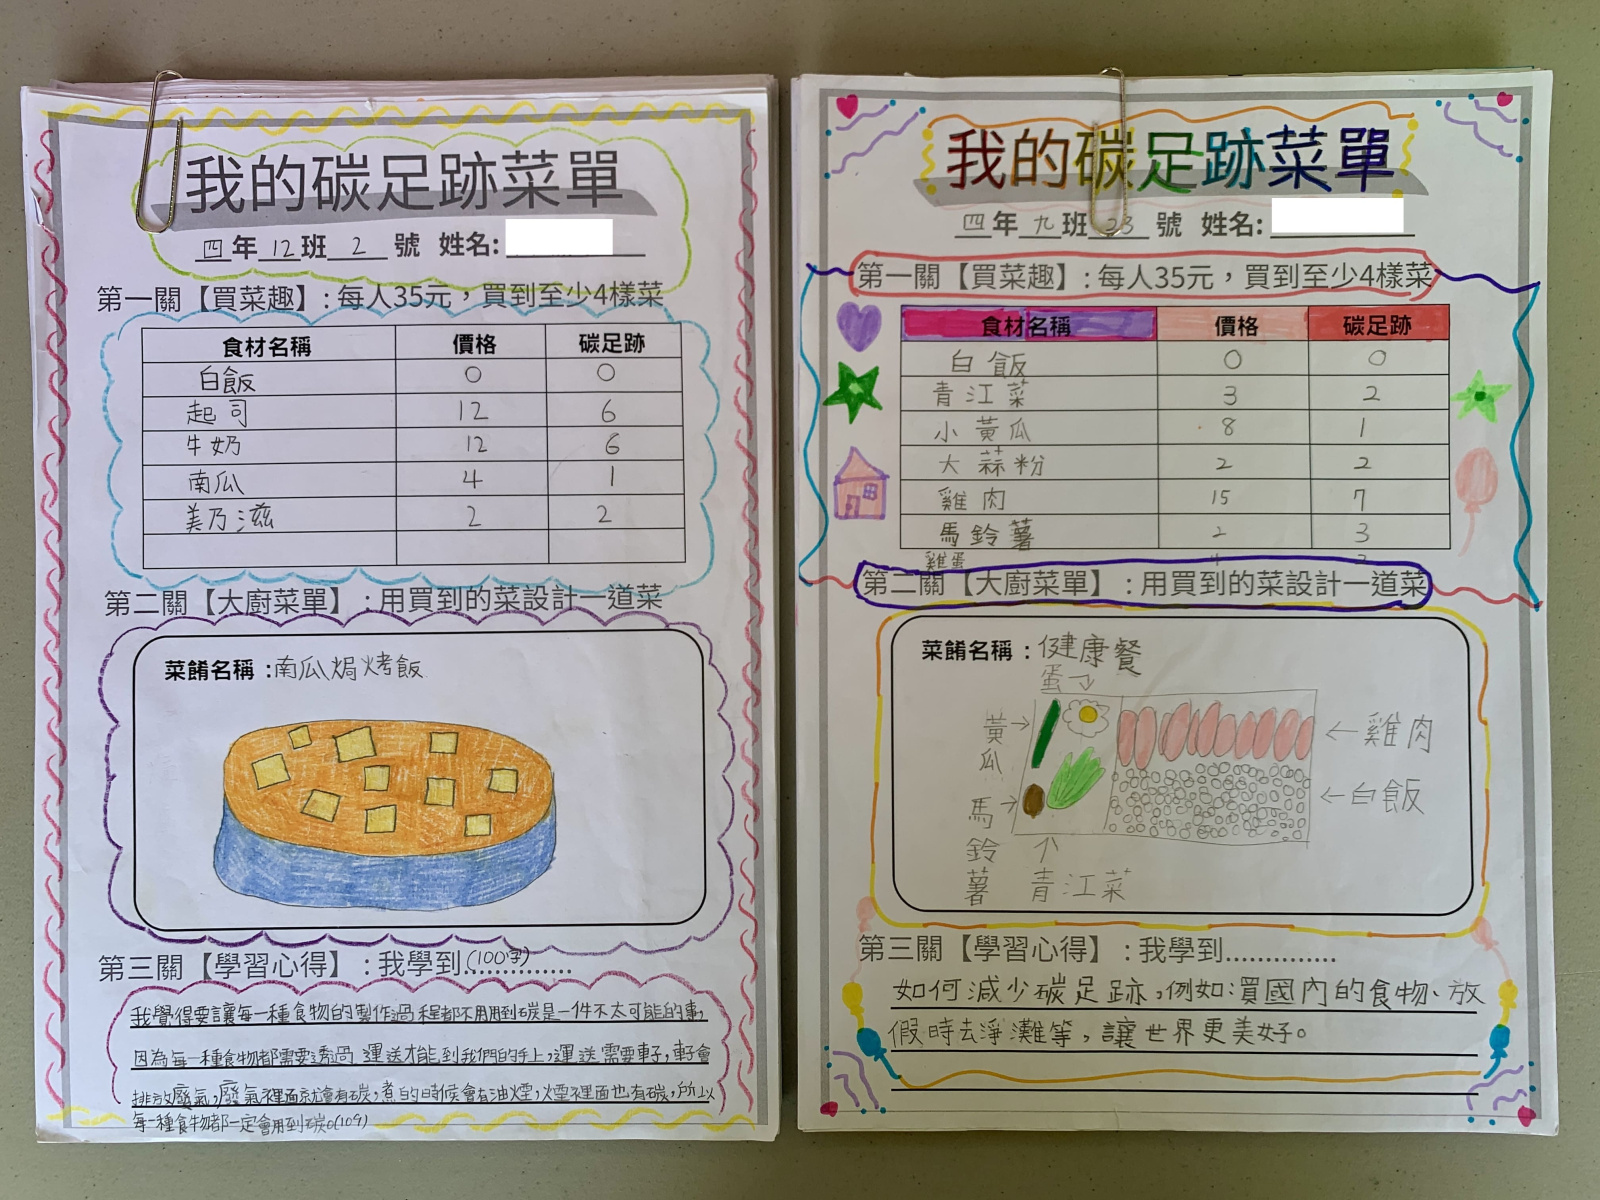 我的碳足跡菜單
四年12班2號 姓名:
第一關【買菜趣】:每人35元,買到至少4樣菜
食材名稱 價格 碳足跡
白飯 0 0
起司 12 6
牛奶 12 6
南瓜 4 1
美乃滋 2 2
第二關【大廚菜單】:用買到的菜設計一道菜
菜餚名稱:南瓜焗烤飯
第三關【學習心得】:我學到..............(100字)
我覺得要讓每一種食物的製作過程都不用用到碳是一件不太可能的事,
因為每一種食物都需要透過運送才能到我們的手上,運送需要車子,車子會
排放廢氣,廢氣裡面就會有碳,煮的時候會有油煙,煙裡面也有碳,所以
每一種食物都一定會用到碳。(109)
我的碳足跡菜單
四年九班23號 姓名:
第一關【買菜趣】:每人35元,買到至少4樣菜
食材名稱 價格 碳足跡
白飯 0 0
青江菜 3 2
小黃瓜 8 1
大蒜粉 2 2
雞肉 15 7
馬鈴薯 2 3
雞蛋
第二關【大廚菜單】:用買到的菜設計一道菜
菜餚名稱:健康餐
蛋
黃瓜
雞肉
馬鈴薯
白飯
青江菜
第三關【學習心得】:我學到..............
如何減少碳足跡,例如:買國內的食物、放
假時去淨灘等,讓世界更美好。